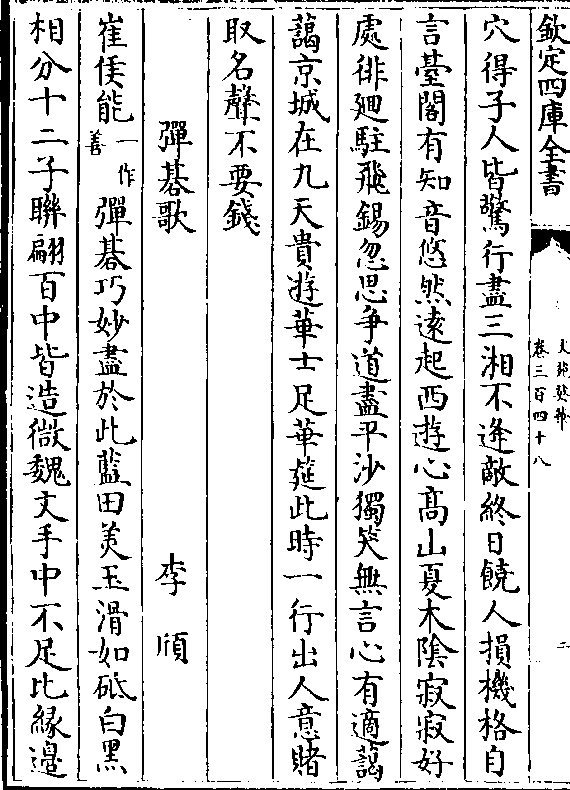 欽定四庫全書
文苑英華
卷三百四十八
二
穴得子人皆驚行盡三湘不逢敵終日饒人損機格自
言䑓閣有知音悠然逺起西遊心髙山夏木陰寂寂好
處徘廻駐飛錫忽思争道盡平沙獨笑無言心有適藹
藹京城在九天貴遊華士足華筵此時一行出人意賭
取名聲不要錢
彈碁歌 李頎
崔侯能一作善彈碁巧妙盡於此藍田美玉滑如砥白黑
相分十二子聨翩百中皆造微魏文手中不足比縁邉